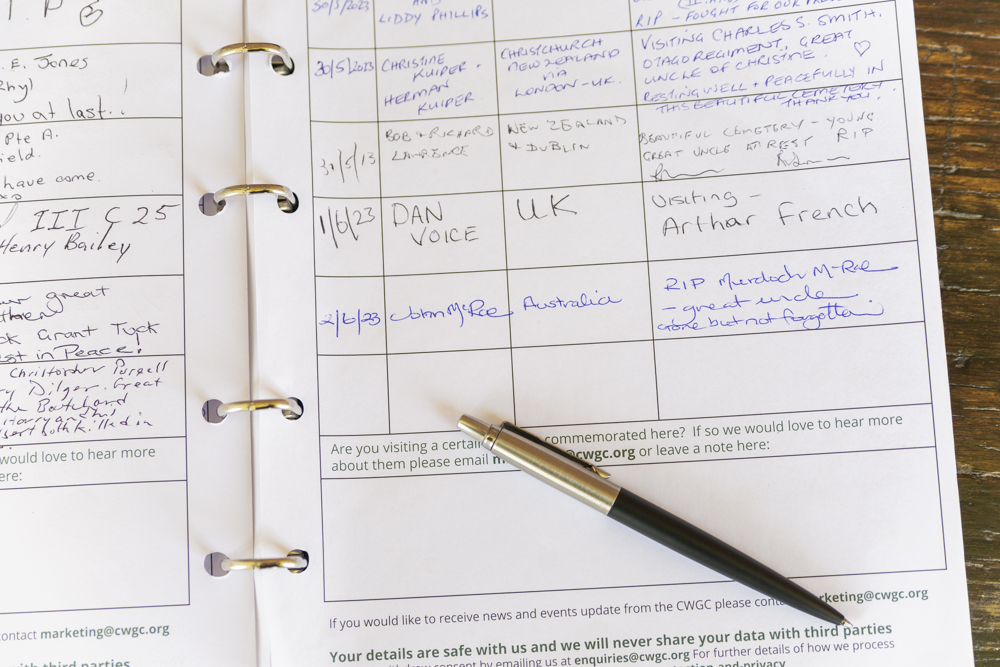 E. Jones
you at last..
Pte A.
have come.
III C 25
Henry Bailey
great
Grant Tyck
in Peace.
Christopher Pursell
Dilger. Great
the
both killed in
would love to hear more
here:
contact marketing@cwgc.org
with third parties
30/5/2023
AND
LIDDY PHILLIPS
RIP - FOUGHT FOR OUR
30/5/2023
CHRISTINE
KUIPER.
HERMAN
KUIPER.
CHRISTCHURCH
NEW ZEALAND
VIA
LONDON-UK.
VISITING CHARLES S. SMITH.
OTAGO REGIMENT, GREAT
UNCLE OF CHRISTINE. ♡
RESTING WELL + PEACEFULLY IN
THIS BEAUTIFUL CEMETERY
THANK YOU.
30/5/13
BOB & RICHARD
LAWRENCE
NEW ZEALAND
& DUBLIN
BEAUTIFUL CEMETERY - YOUNG
GREAT UNCLE AT REST RIP
1/6/23
DAN
VOICE
UK
Visiting -
Arthar French
2/6/23
John McRae
Australia
RIP Murdoch M-Rae
- great uncle
Gone but not forgotten.
Are you visiting a commemorated here? If so we would love to hear more
about them please email @cwgc.org or leave a note here:
If you would like to receive news and events update from the CWGC please marketing@cwgc.org
Your details are safe with us and we will never share your data with third parties
consent by emailing us at enquiries@cwgc.org For further details of how we process